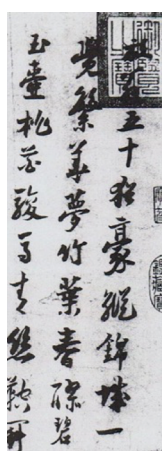 五十猶豪縱錦城一
覺繁華夢竹葉春醪碧
玉壺桃花駿馬青絲鞚鬥